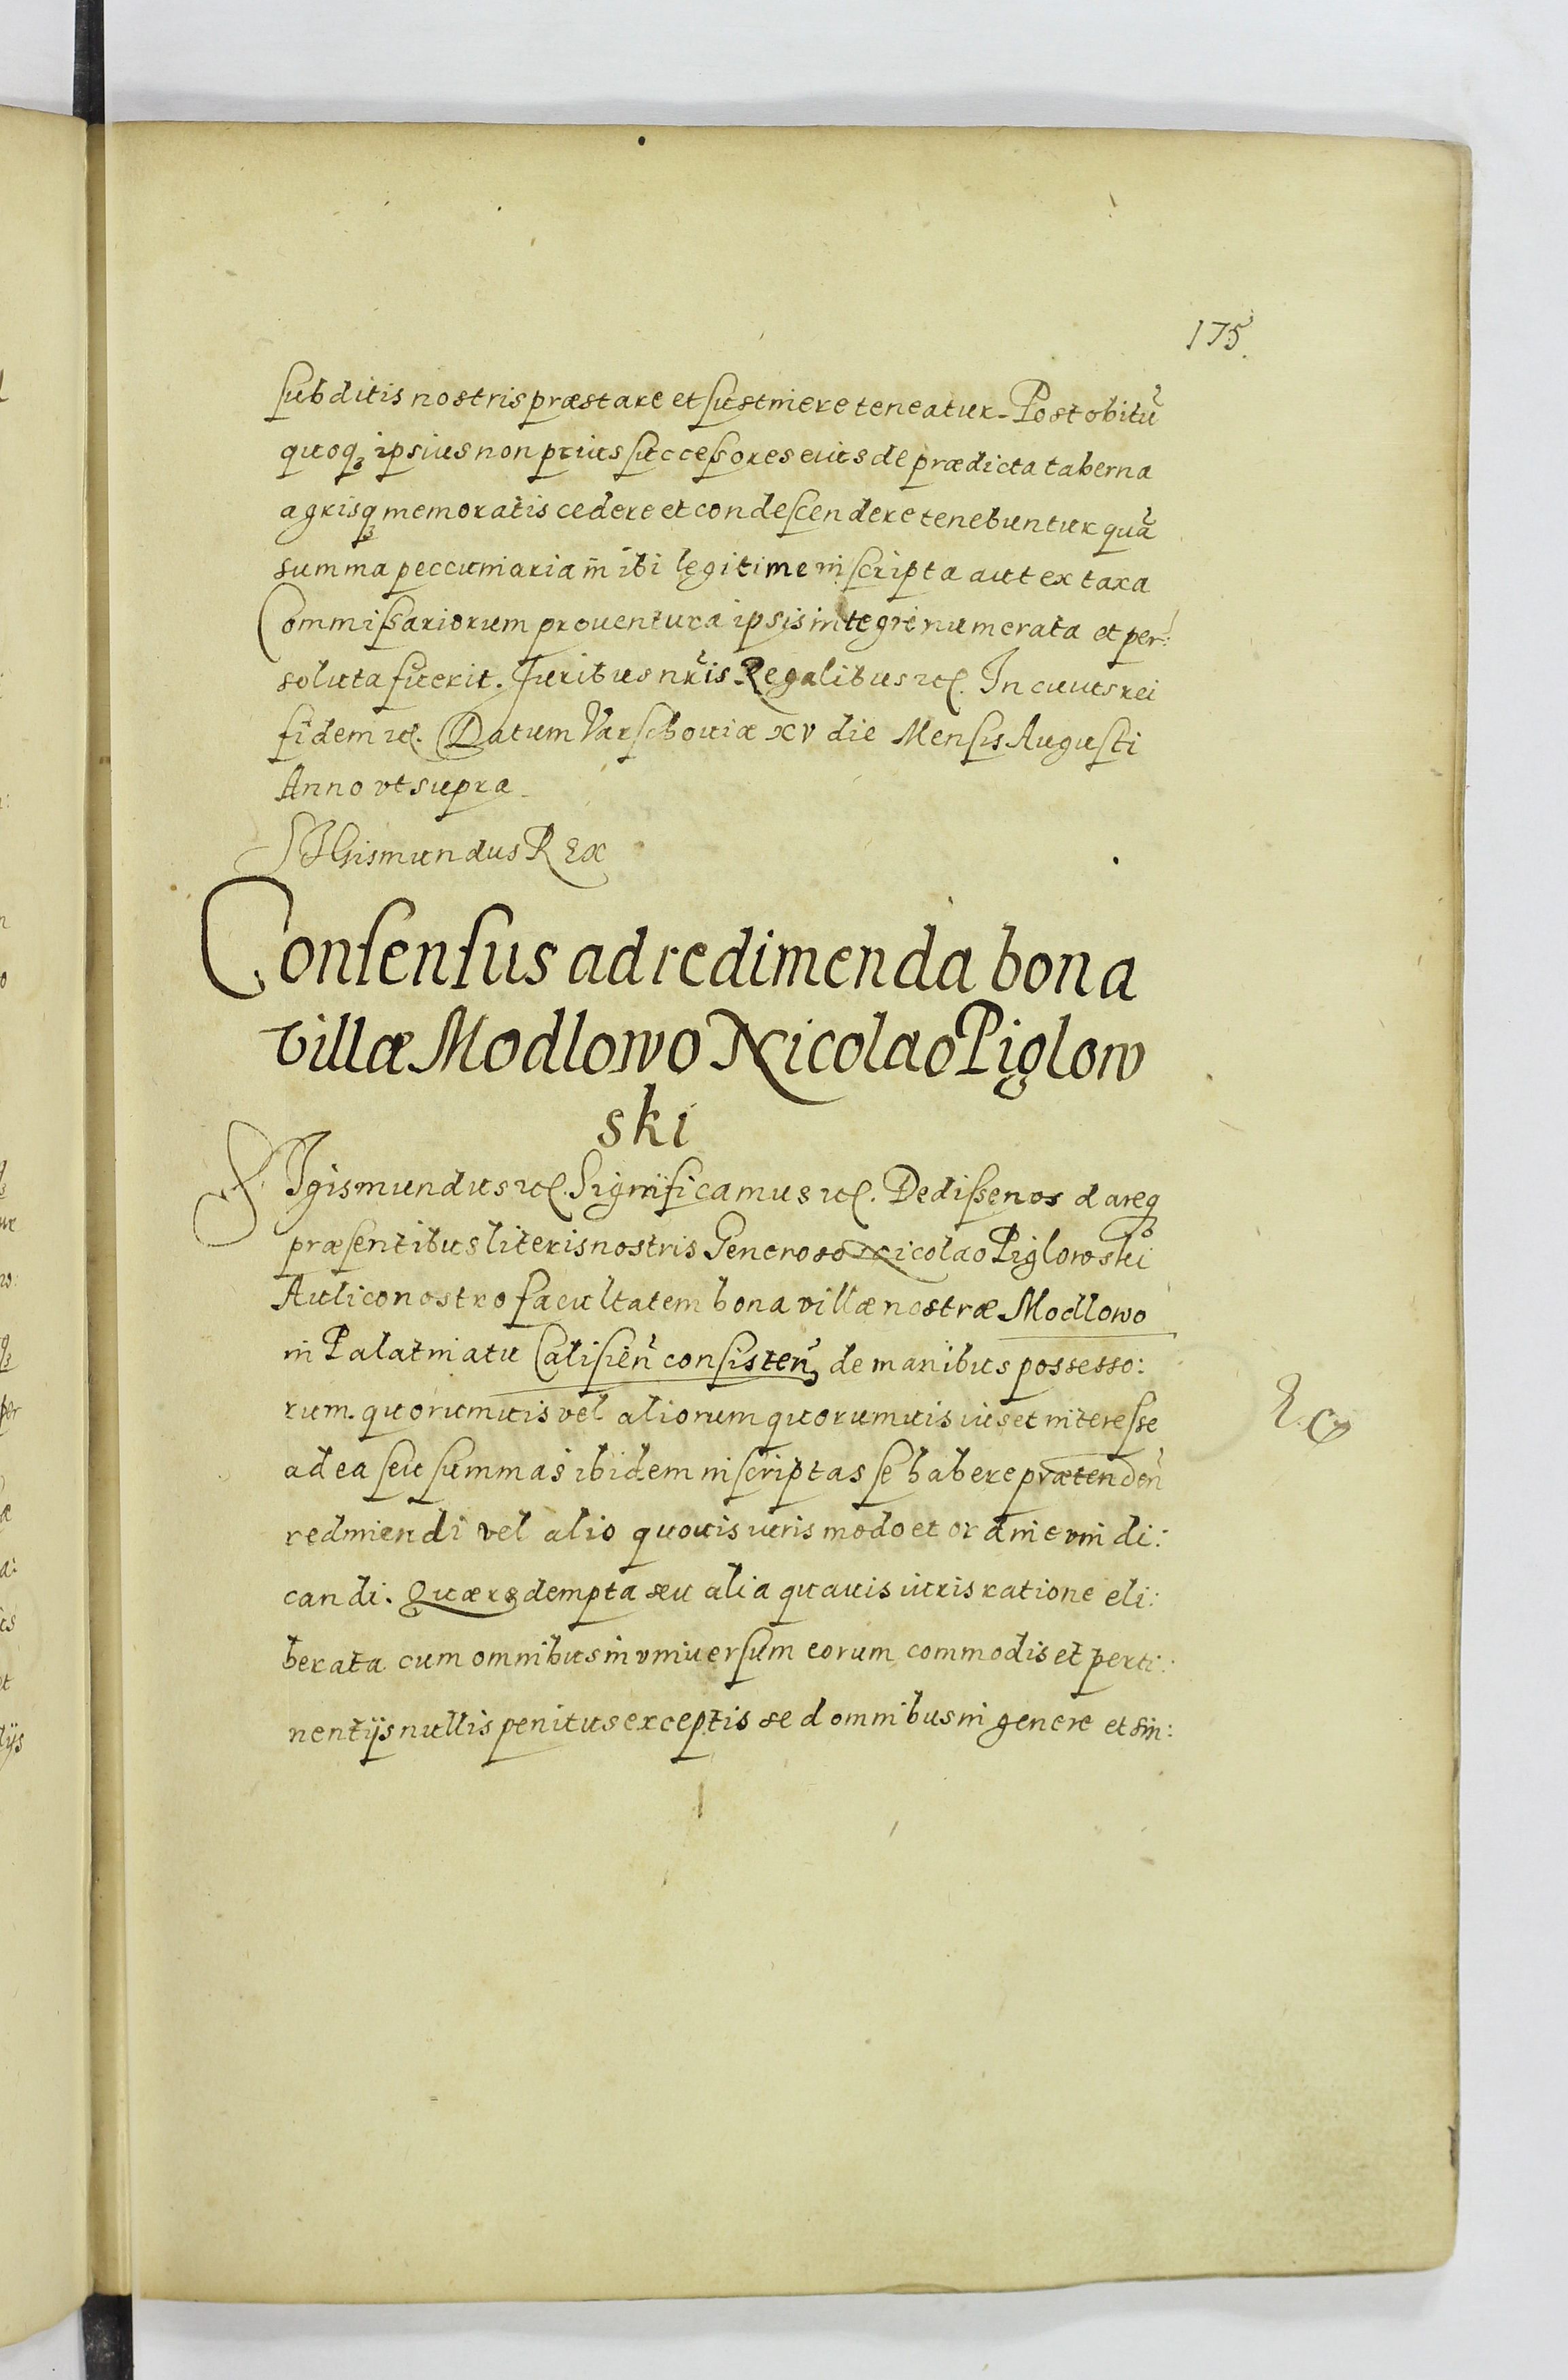 175.
subditis nostris præstare et sustinere teneatur. Post obitū
quoq₃ ipsius non prius successores eius de prædicta taberna
agrisq₃ memoratis cedere et condescendere tenebuntur quā
summa peccuniaria in ibi legitime inscripta aut ex taxa
Commissariorum prouentura ipsis integre numerata et per:
soluta fuerit. Juribus nr̃is Regalibus etc. In cuius rei
fidem etc. Datum Varschouiæ xv die Mensis Augusti
Anno vt supra.
SIGismundus REX
Consensus ad redimenda bona
villæ Modlowo Nicolao Piglow
ski
SIgismundus etc. Significamus etc. Dedisse nos dareq₃
præsentibus literis nostris Generoso Nicolao Piglowski
Aulico nostro facultatem bona villæ nostræ Modlowo
in Palatinatu Calisień consisteñ de manibus possesso:
rum. quorumuis vel aliorum quorumuis ius et interesse
ad ea seu summas ibidem inscriptas se habere prætendeñ
redimendi vel alio quouis iuris modo et ordine vindi:
candi. Quæ redempta seu alia quauis iuris ratione eli:
berata cum omnibus in vniuersum eorum commodis et perti:
nentijs nullis penitus exceptis sed omnibus in genere et sin: